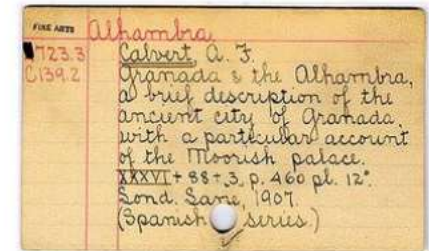 FINE ARTS
Alhambra
723.3 Calvert, A. F.
C139.2 Granada & the Alhambra,
a brief description of the
ancient city of Granada,
with a particular account
of the Moorish palace.
XXXVI + 88 + 3, p. 460 pl. 12°.
Lond. Lane, 1907.
(Spanish series.)